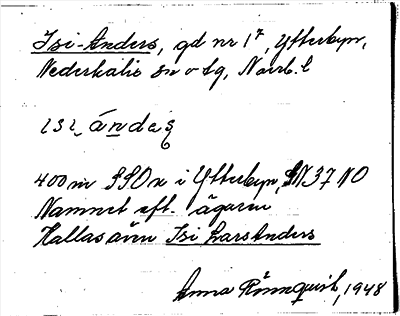 Isi-Anders, gd nr 1², Ytterbyn,
Nederkalix sn o tg, Norrb. l
ɩsɩ, ándaș
400 m SSO x i Ytterbyn, SN37NO
Namnet eft. ägaren
Kallas även Isi Lars Anders
Anna Rönnquist, 1948